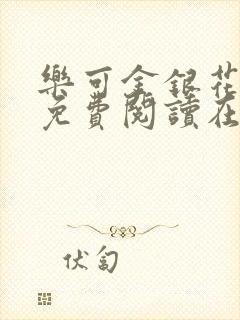 樂可金銀花
免費閱讀在
伏匐